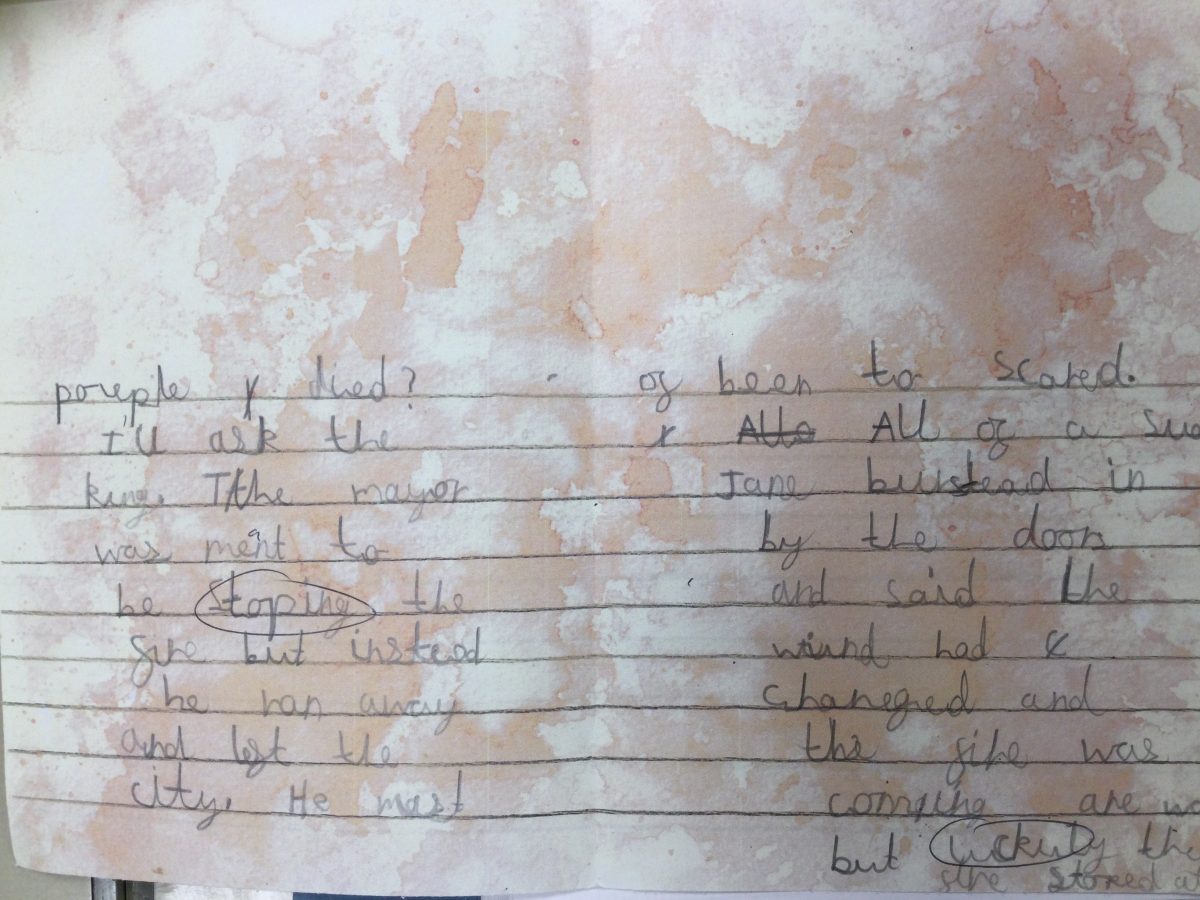 poreple died?
I'll ask the
king. The mayor
was ment to
be stoping the
fire but instead
he ran away
and left the
city. He mast
of been to scared.
All of a su
Jane burstead in
by the door
and said the
wiund had
changed and
the fire was
coming are wa
but luckuly the
fire stored at